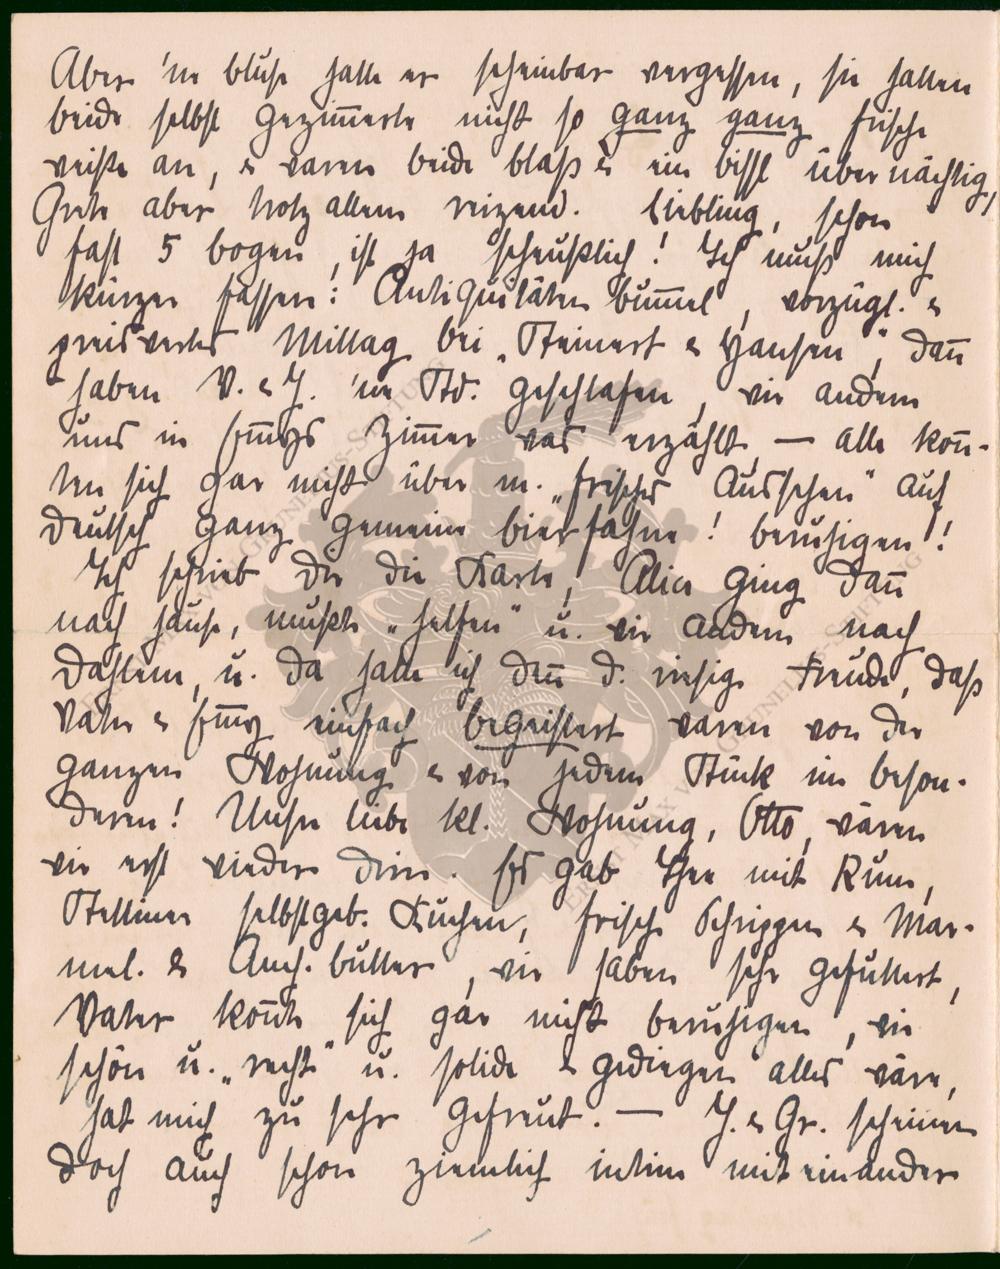 Aber 'ne bluse hatte er scheinbar vergessen, sie hatten
beide selbst gezim̅erte nicht so ganz ganz frische
weiße an, & waren beide blaß & ein bissl übernächtig,
Grete aber trotz allem reizend. Liebling, schon
fast 5 bogen, ist ja scheußlich! Ich muß mich
kürzer fassen: Antiquitäten bum̅el, vorzügl. &
preiswertes Mittag bei „Steinert & Hansen", dan̅
haben V. & J. 'ne Std. geschlafen, wir andern
uns in Em̅ys Zim̅er was erzählt, — alle kon̅-
ten sich gar nicht über m. „frisches Aussehen" auf
deutsch ganz gemeine bierfahne! beruhigen!!
Ich schrieb Dir die Karte, Alice ging dan̅
nach hause, mußte „helfen" u. wir andern nach
Dahlem, u. da hatte ich den̅ d. riesige Freude, daß
Vater & Em̅y einfach begeistert waren von der
ganzen Wohnung & von jedem Stück im beson-
deren! Unsre liebe kl. Wohnung, Otto, wären
wir erst wieder drin. Es gab Thee mit Rum,
Stettiner selbstgeb. Kuchen, frische Schrippen & Mar-
mel. & Auch. butter, wir haben sehr gefuttert,
Vater kon̅te sich gar nicht beruhigen, wie
schön u. „recht" u. solide & gediegen alles wäre,
hat mich zu sehr gefreut. — J. & Gr. scheinen
doch auch schon ziemlich intim miteinander
ERNST MAX VON GRUNELIUS-STIFTUNG
ERNST MAX VON GRUNELIUS-STIFTUNG